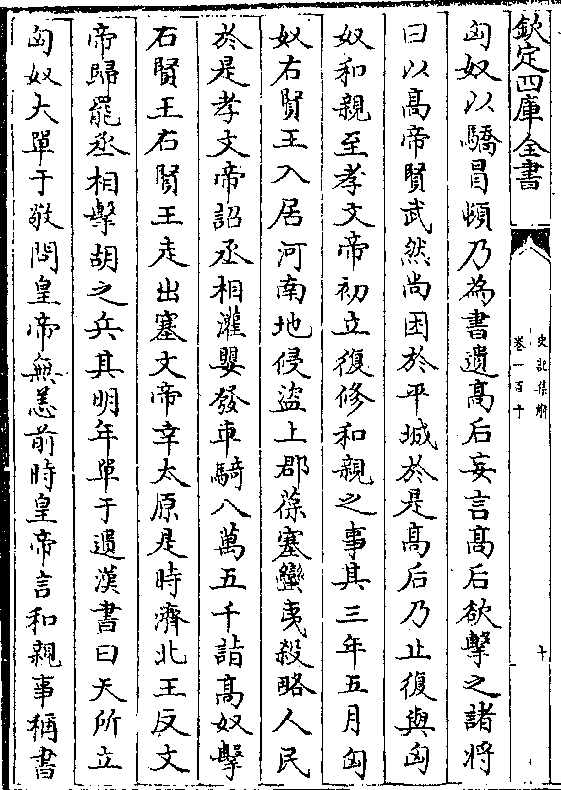 欽定四庫全書
史記集解
卷一百十
十
匈奴以驕冒頓乃為書遺髙后妄言髙后欲擊之諸將
曰以髙帝賢武然尚困於平城於是髙后乃止復與匈
奴和親至孝文帝初立復修和親之事其三年五月匈
奴右賢王入居河南地侵盜上郡葆塞蠻夷殺略人民
於是孝文帝詔丞相灌嬰發車騎八萬五千詣髙奴擊
右賢王右賢王走出塞文帝幸太原是時濟北王反文
帝歸罷丞相擊胡之兵其明年單于遺漢書曰天所立
匈奴大單于敬問皇帝無恙前時皇帝言和親事稱書